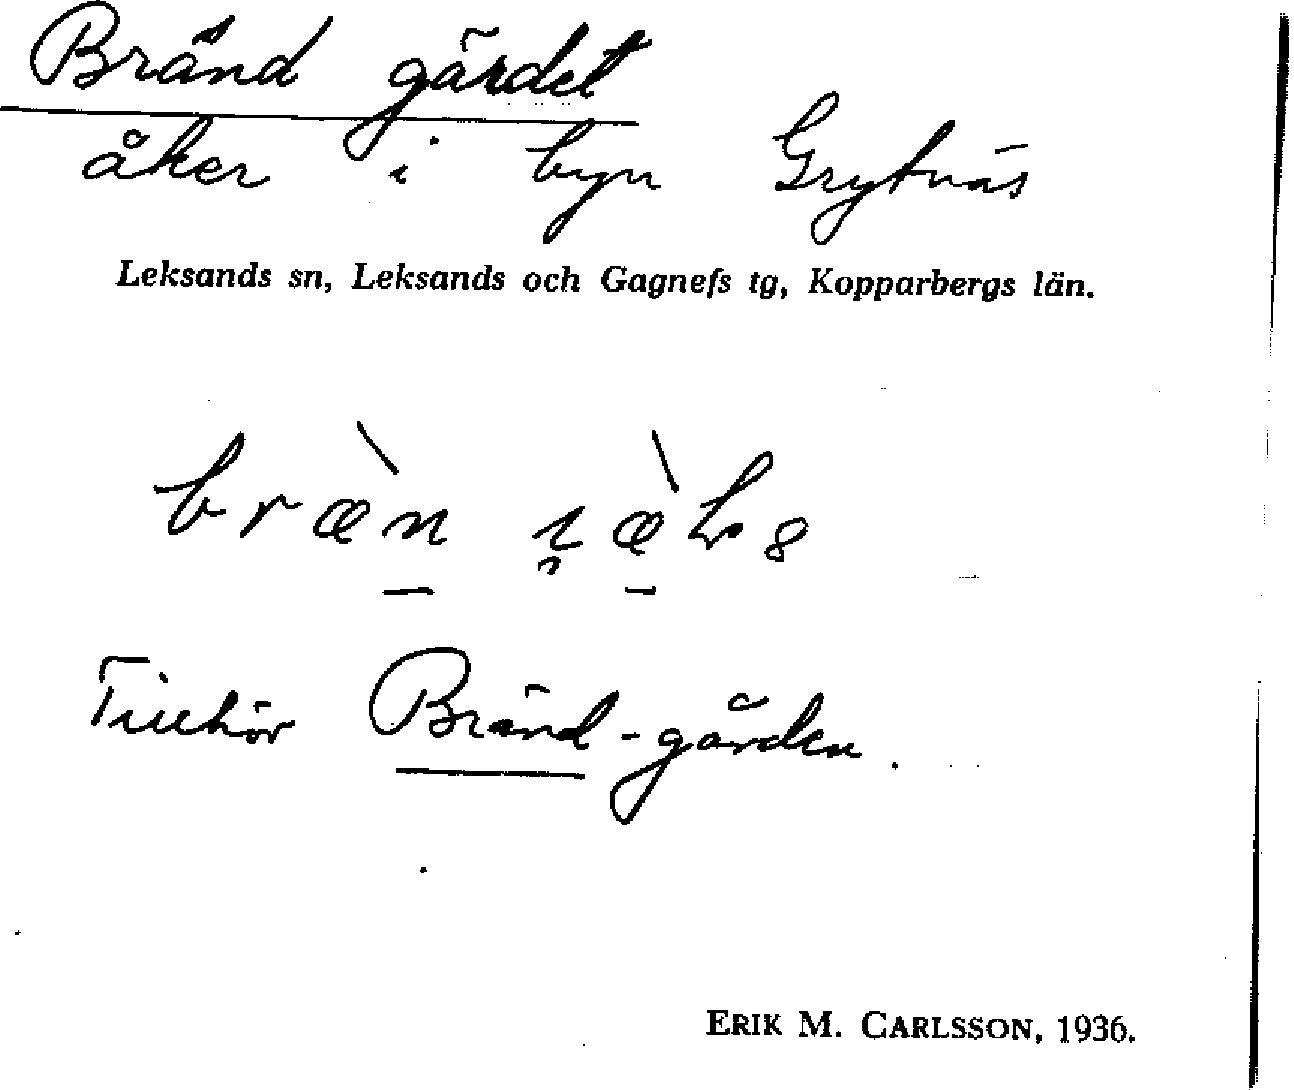 Bränd gärdet
åker i byn Grytnäs
Leksands sn, Leksands och Gagnefs tg, Kopparbergs län.
bræ̀n
Tillhör Bränd-gården.
ERIK M. CARLSSON, 1936.